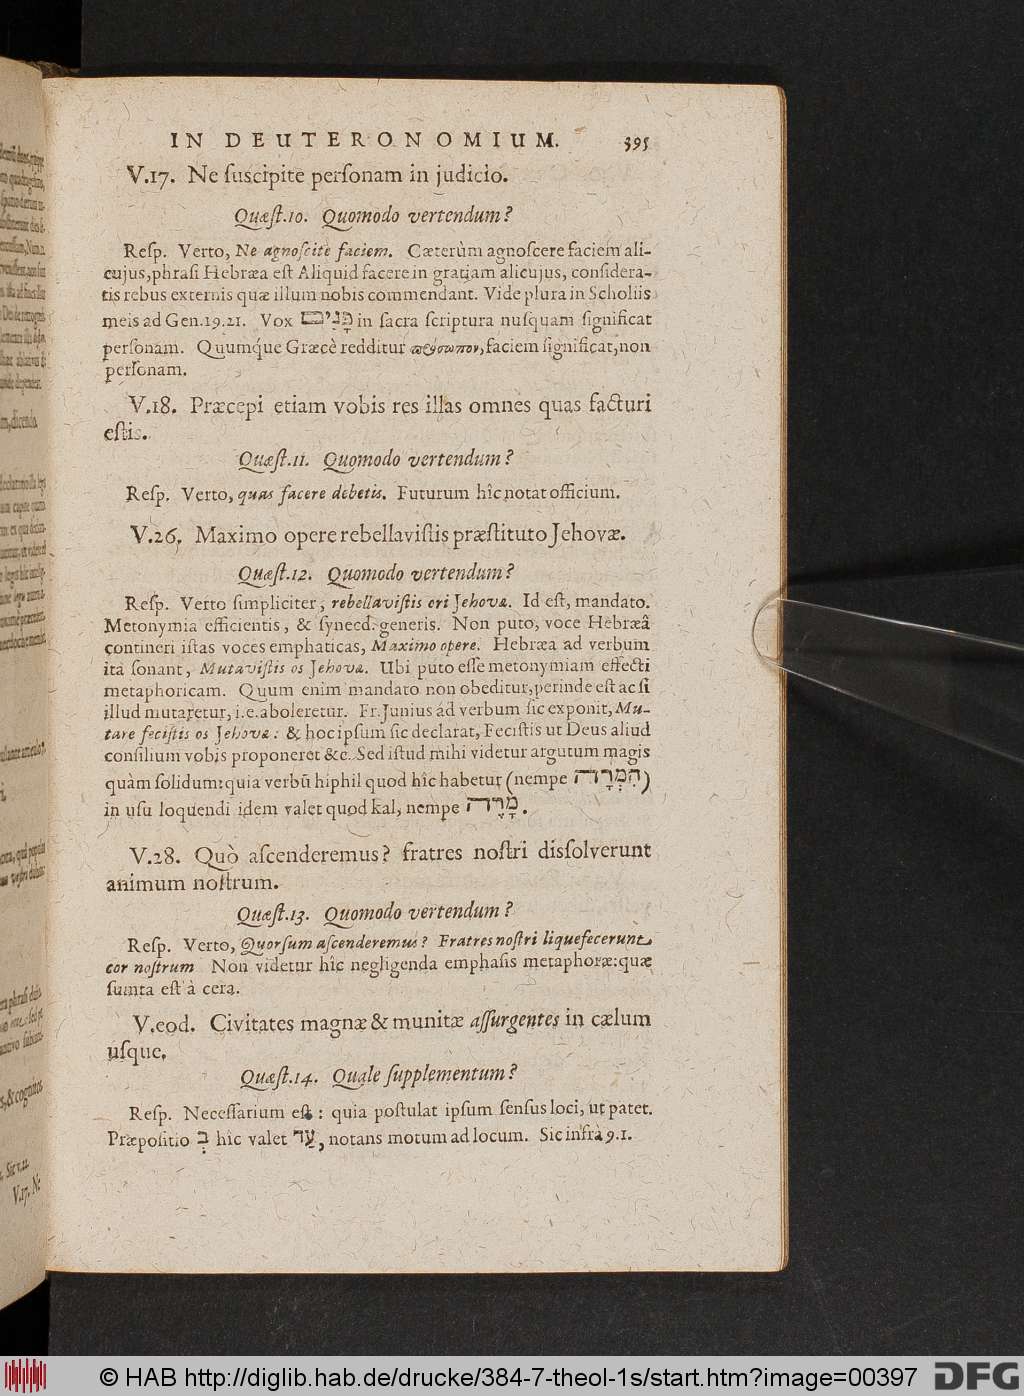 IN DEUTERONOMIUM. 395
V.17. Ne ſuscipite perſonam in judicio.
Quæſt.10. Quomodo vertendum?
Reſp. Verto, Ne agnoſcite faciem. Cæterùm agnoſcere faciem ali-
cujus, phraſi Hebræa eſt Aliquid facere in gratiam alicujus, conſidera-
tis rebus externis quæ illum nobis commendant. Vide plura in Scholiis
meis ad Gen.19.21. Vox פָּנִים in ſacra ſcriptura nuſquam ſignificat
perſonam. Quumq́ue Græcè redditur πρόσωπον, faciem ſignificat, non
perſonam.
V.18. Præcepi etiam vobis res illas omnes quas facturi
eſtis.
Quæſt.11. Quomodo vertendum?
Reſp. Verto, quas facere debetis. Futurum hîc notat officium.
V.26. Maximo opere rebellaviſtis præſtituto Jehovæ.
Quæſt.12. Quomodo vertendum?
Reſp. Verto ſimpliciter, rebellaviſtis ori Jehovæ. Id eſt, mandato.
Metonymia efficientis, & ſynecd. generis. Non puto, voce Hebræâ
contineri iſtas voces emphaticas, Maximo opere. Hebræa ad verbum
ita ſonant, Mutaviſtis os Jehovæ. Ubi puto eſſe metonymiam effecti
metaphoricam. Quum enim mandato non obeditur, perinde eſt ac ſi
illud mutaretur, i.e. aboleretur. Fr. Junius ád verbum ſic exponit, Mu-
tare feciſtis os Jehovæ: & hoc ipſum ſic declarat, Feciſtis ut Deus aliud
conſilium vobis proponeret &c. Sed iſtud mihi videtur argutum magis
quàm ſolidum: quia verbū hiphil quod hîc habetur (nempe הִמְרָה)
in uſu loquendi idem valet quod kal, nempe מָרָה.
V.28. Quò aſcenderemus? fratres noſtri diſſolverunt
animum noſtrum.
Quæſt.13. Quomodo vertendum?
Reſp. Verto, Quorſum aſcenderemus? Fratres noſtri liquefecerunt
cor noſtrum Non videtur hîc negligenda emphaſis metaphoræ: quæ
ſumta eſt à cera.
V.eod. Civitates magnæ & munitæ aſſurgentes in cælum
uſque.
Quæſt.14. Quale ſupplementum?
Reſp. Neceſſarium eſt: quia poſtulat ipſum ſenſus loci, ut patet.
Præpoſitio בְּ hîc valet עַד, notans motum ad locum. Sic infrà 9.1.
© HAB http://diglib.hab.de/drucke/384-7-theol-1s/start.htm?image=00397 DFG